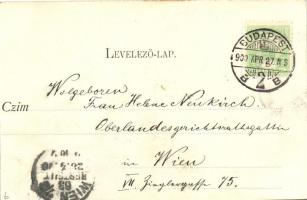 LEVELEZŐ-LAP.
BUDAPEST
Czim
Wolgeboren
Frau Helene Neukirch
Oberlandesgerichtsrathsgattin
in Wien
VII. Zieglergasse 75.